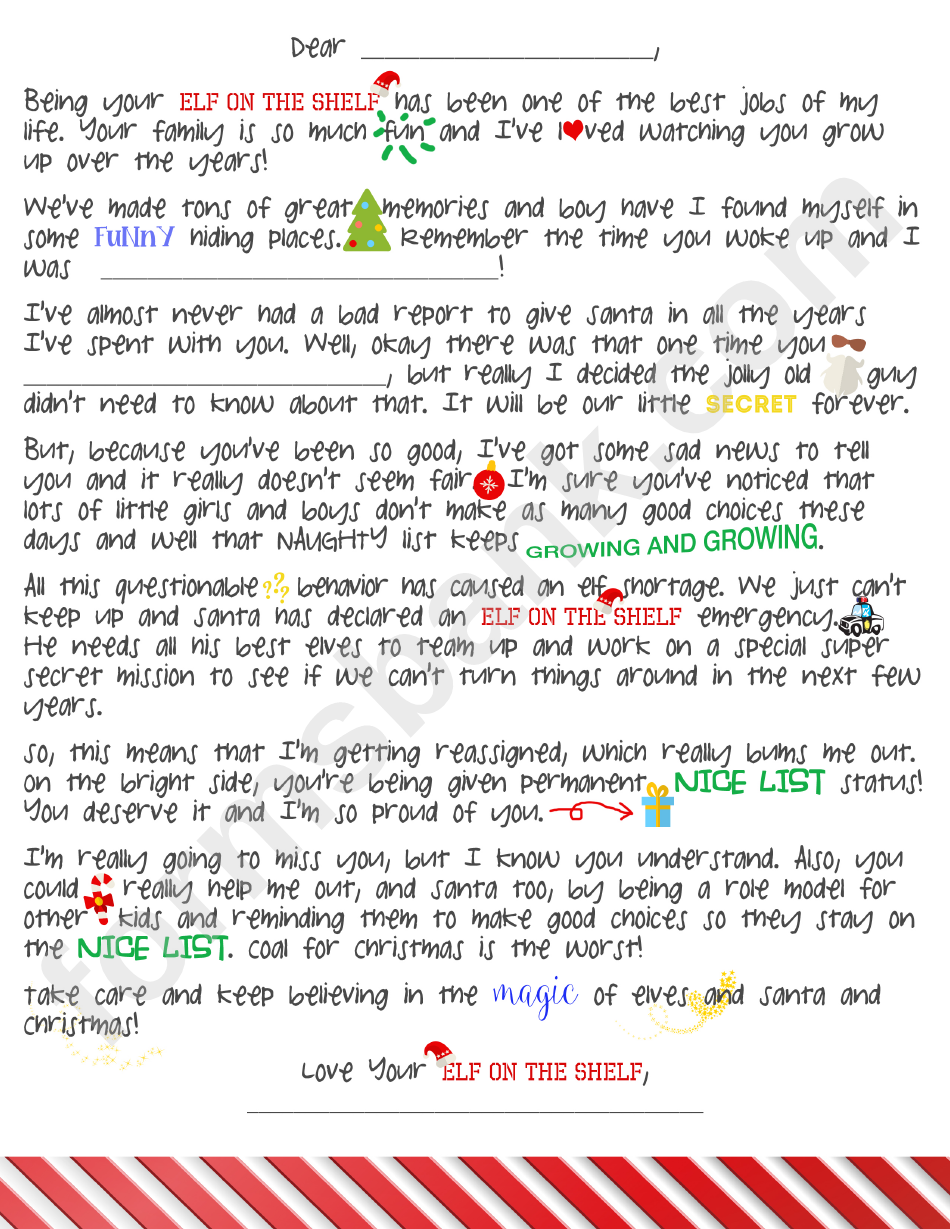 Dear ______________________,
Being your ELF ON THE SHELF has been one of the best jobs of my
life. Your family is so much fun and I've loved watching you grow
up over the years!
We've made tons of great memories and boy have I found myself in
some FuNNY hiding places. Remember the time you woke up and I
was ______________________________!
I've almost never had a bad report to give Santa in all the years
I've spent with you. Well, okay there was that one time you
___________________________, but really I decided the jolly old guy
didn't need to know about that. It will be our little SECRET forever.
But, because you've been so good, I've got some sad news to tell
you and it really doesn't seem fair. I'm sure you've noticed that
lots of little girls and boys don't make as many good choices these
days and well that NAUGHTY list keeps GROWING AND GROWING.
All this questionable ??? behavior has caused an elf shortage. We just can't
keep up and Santa has declared an ELF ON THE SHELF emergency.
He needs all his best elves to team up and work on a special super
secret mission to see if we can't turn things around in the next few
years.
So, this means that I'm getting reassigned, which really bums me out.
On the bright side, you're being given permanent NICE LIST status!
You deserve it and I'm so proud of you.
I'm really going to miss you, but I know you understand. Also, you
could really help me out, and Santa too, by being a role model for
other kids and reminding them to make good choices so they stay on
the NICE LIST. Coal for Christmas is the worst!
Take care and keep believing in the magic of elves and Santa and
Christmas!
Love Your ELF ON THE SHELF,
__________________________________
formsbank.com